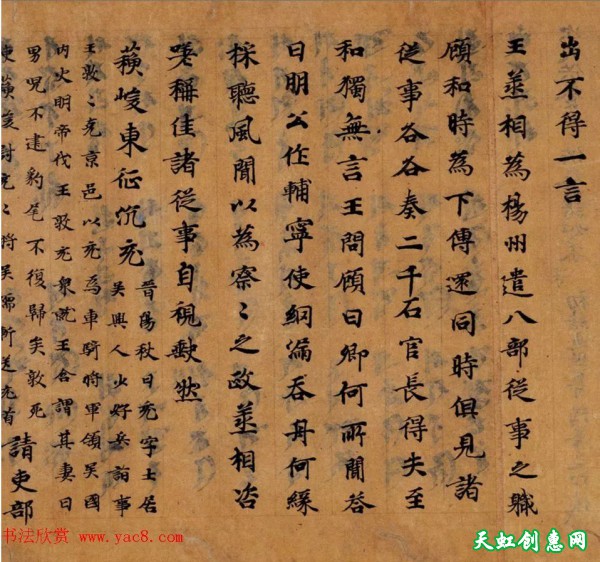 出不得一言
王丞相為楊州遣八部從事之職
顧和時為下傳還同時俱見諸
從事各各奏二千石官長得失至
和獨無言王問顧曰卿何所聞荅
曰明公作輔寧使網漏吞舟何緣
採聽風聞以為察〻之政丞相咨
嗟稱佳諸從事自視缺然
蘋峻東征沉充
晉陽秋曰充字士居
吳興人少好兵諂事
王敦〻克京邑以充為車騎將軍領吳國
内史明帝伐王敦充衆就王含謂其妻曰
男兒不建豹尾不復歸矣敦死
充將吳儒斬送充首
請吏部
书法欣赏 www.yac8.com
天虹创惠网